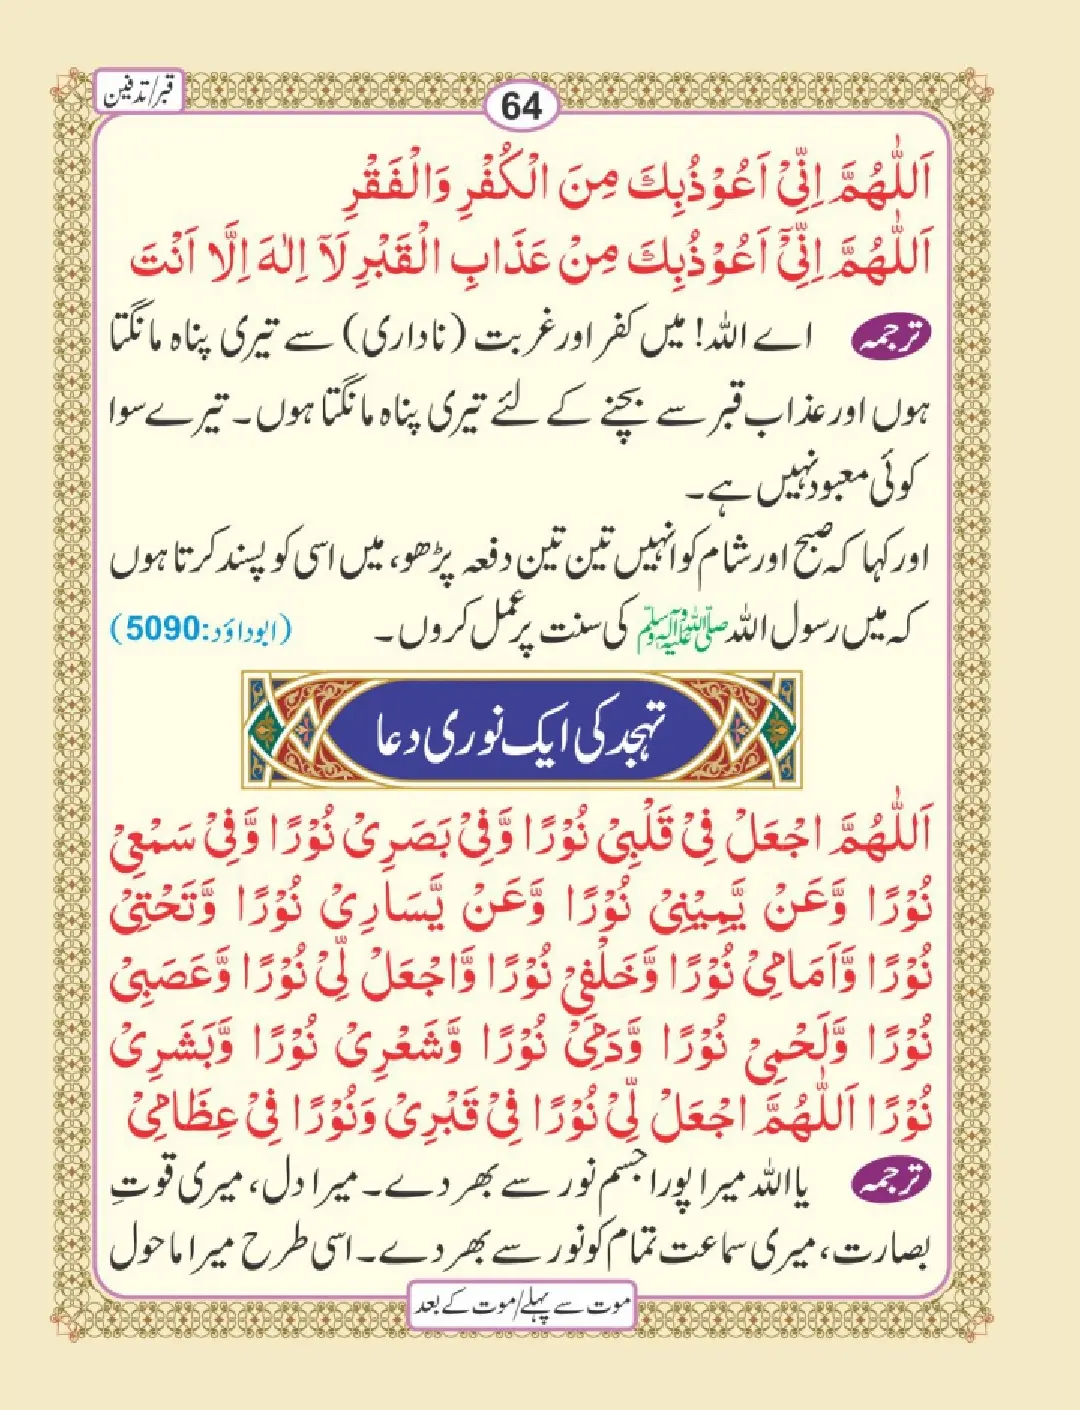 قبر/تدفین
64
اَللّٰهُمَّ اِنِّیْ اَعُوْذُبِكَ مِنَ الْكُفْرِ وَالْفَقْرِ
اَللّٰهُمَّ اِنِّیْٓ اَعُوْذُبِكَ مِنْ عَذَابِ الْقَبْرِ لَآ اِلٰهَ اِلَّا اَنْتَ
ترجمہ اے اللہ! میں کفر اور غربت (ناداری) سے تیری پناہ مانگتا
ہوں اور عذاب قبر سے بچنے کے لئے تیری پناہ مانگتا ہوں۔ تیرے سوا
کوئی معبود نہیں ہے۔
اور کہا کہ صبح اور شام کو انہیں تین تین دفعہ پڑھو، میں اسی کو پسند کرتا ہوں
کہ میں رسول اللہ صلی اللہ علیہ وآلہ وسلم کی سنت پر عمل کروں۔ (ابوداؤد:5090)
تہجد کی ایک نوری دعا
اَللّٰهُمَّ اجْعَلْ فِیْ قَلْبِیْ نُوْرًا وَّفِیْ بَصَرِیْ نُوْرًا وَّفِیْ سَمْعِیْ
نُوْرًا وَّعَنْ یَّمِیْنِیْ نُوْرًا وَّعَنْ یَّسَارِیْ نُوْرًا وَّتَحْتِیْ
نُوْرًا وَّاَمَامِیْ نُوْرًا وَّخَلْفِیْ نُوْرًا وَّاجْعَلْ لِّیْ نُوْرًا وَّعَصَبِیْ
نُوْرًا وَّلَحْمِیْ نُوْرًا وَّدَمِیْ نُوْرًا وَّشَعْرِیْ نُوْرًا وَّبَشَرِیْ
نُوْرًا اَللّٰهُمَّ اجْعَلْ لِّیْ نُوْرًا فِیْ قَبْرِیْ وَنُوْرًا فِیْ عِظَامِیْ
ترجمہ یااللہ میرا پورا جسم نور سے بھر دے۔ میرا دل، میری قوتِ
بصارت، میری سماعت تمام کو نور سے بھر دے۔ اسی طرح میرا ماحول
موت سے پہلے/موت کے بعد